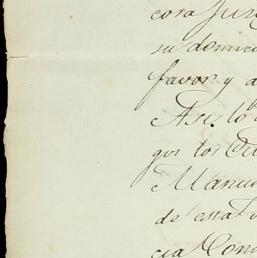 cosa Juz
su domici
favor y a
Asi lo
qos los
Manu
de esta
cia Con